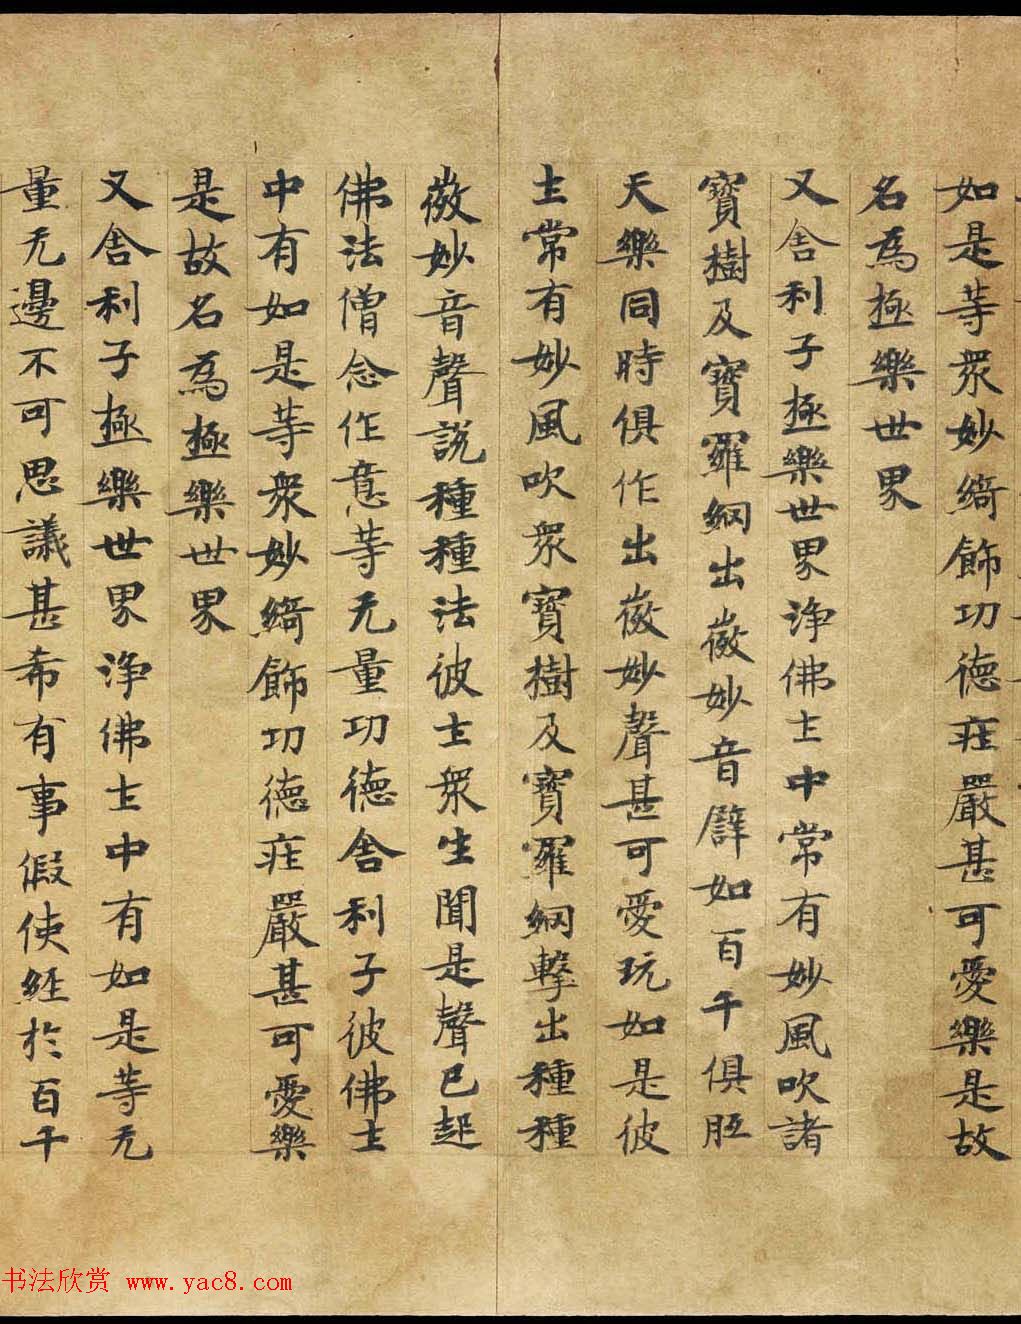 如是等衆妙綺飾功德疰嚴甚可愛樂是故
名為極樂世界
又舎利子極樂世界浄佛土中常有妙風吹諸
寶樹及寶羅網出微妙音譬如百千俱胝
天樂同時俱作出微妙聲甚可愛玩如是彼
土常有妙風吹衆寶樹及寶羅網擊出種種
微妙音聲說種種法彼土衆生聞是聲已起
佛法僧念作意等无量功德舎利子彼佛土
中有如是等衆妙綺飾功德疰嚴甚可愛樂
是故名為極樂世界
又舎利子極樂世界浄佛土中有如是等无
量无邊不可思議甚希有事假使經於百千
书法欣赏 www.yac8.com